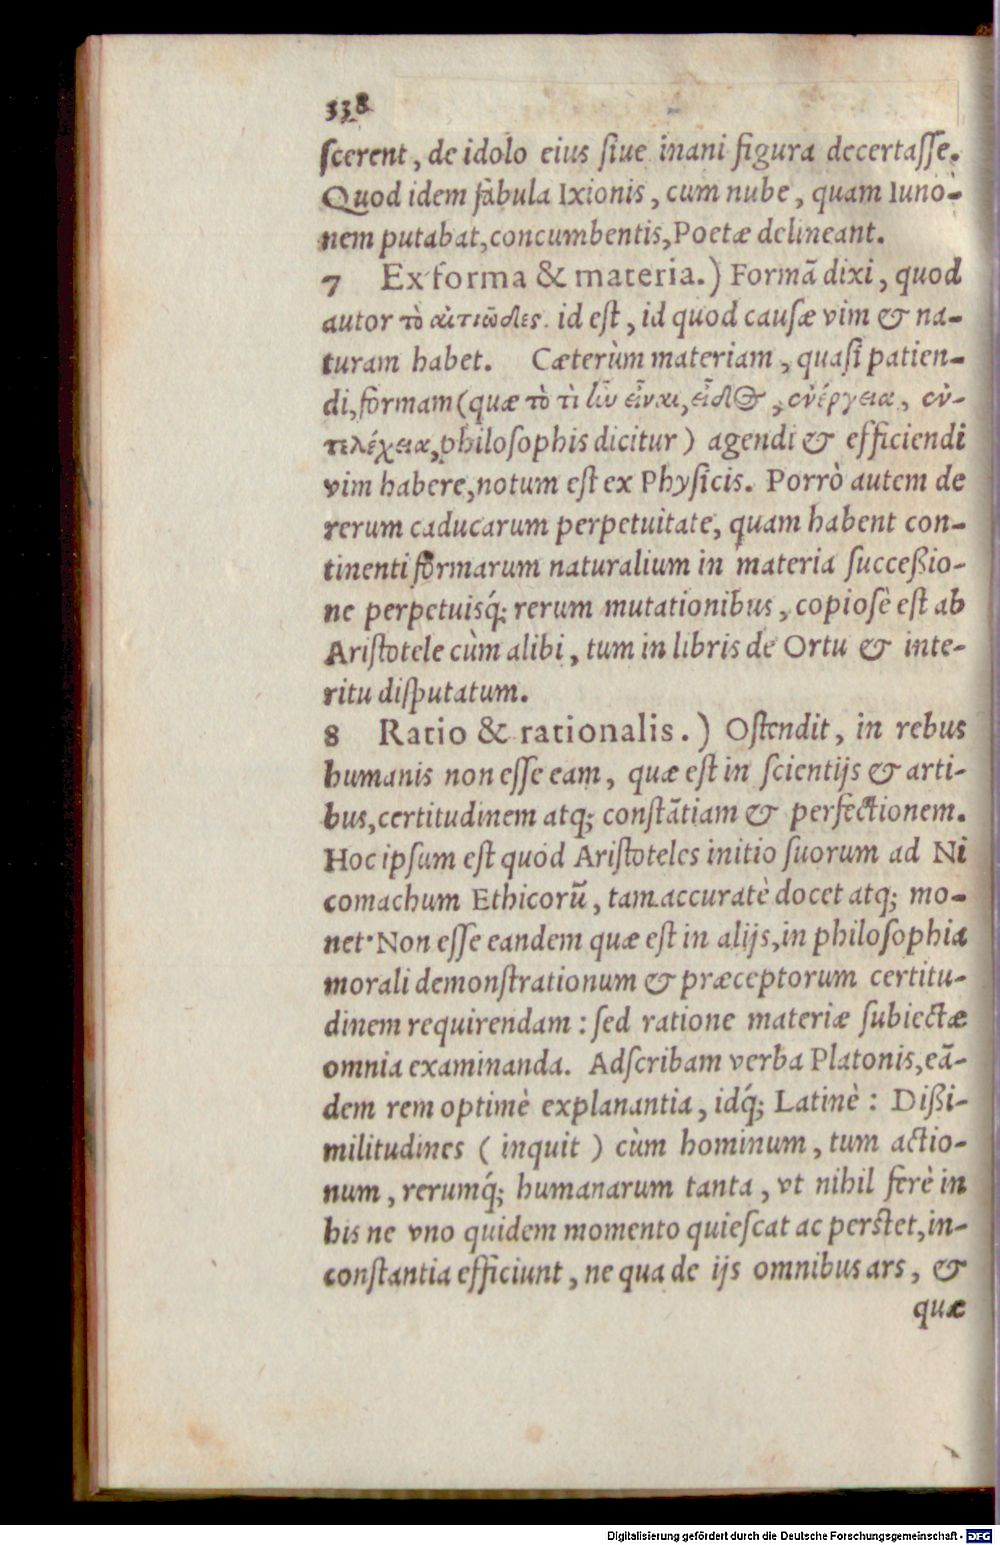 338
ſcerent, de idolo eius ſiue inani figura decertaſſe.
Quod idem fabula Ixionis, cum nube, quam Iuno-
nem putabat, concumbentis, Poetæ delineant.
7 Ex forma & materia.) Formã dixi, quod
autor τὸ αἰτιῶδες. id eſt, id quod cauſæ vim & na-
turam habet. Cæterùm materiam, quaſi patien-
di, formam (quæ τὸ τὶ ἦν εἶναι, εἶδος, ἐνέργεια, ἐν-
τελέχεια, philoſophis dicitur) agendi & efficiendi
vim habere, notum eſt ex Phyſicis. Porrò autem de
rerum caducarum perpetuitate, quam habent con-
tinenti formarum naturalium in materia ſucceßio-
ne perpetuisq́; rerum mutationibus, copioſè eſt ab
Ariſtotele cùm alibi, tum in libris de Ortu & inte-
ritu diſputatum.
8 Ratio & rationalis.) Oſtendit, in rebus
humanis non eſſe eam, quæ eſt in ſcientijs & arti-
bus, certitudinem atq; conſtãtiam & perfectionem.
Hoc ipſum eſt quod Ariſtoteles initio ſuorum ad Ni
comachum Ethicorũ, tam accuratè docet atq; mo-
net. Non eſſe eandem quæ eſt in alijs, in philoſophia
morali demonſtrationum & præceptorum certitu-
dinem requirendam: ſed ratione materiæ ſubiectæ
omnia examinanda. Adſcribam verba Platonis, eã-
dem rem optimè explanantia, idq́; Latinè: Dißi-
militudines (inquit) cùm hominum, tum actio-
num, rerumq́; humanarum tanta, vt nihil ferè in
his ne vno quidem momento quieſcat ac perſtet, in-
conſtantia efficiunt, ne qua de ijs omnibus ars, &
quæ
Digitalisierung gefördert durch die Deutsche Forschungsgemeinschaft - DFG